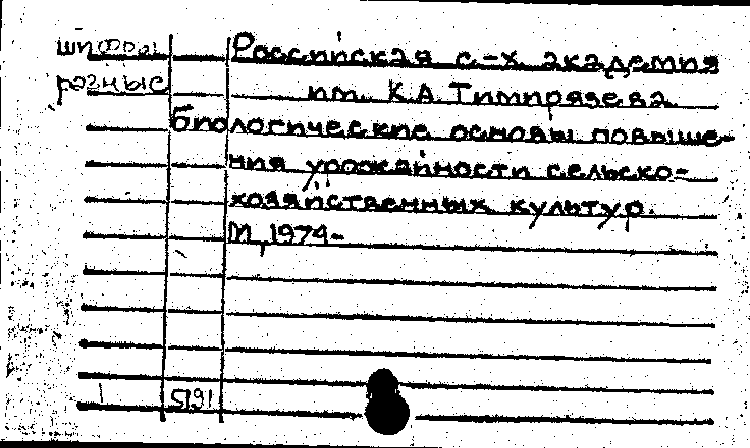 шифры Российская с.-х. академия
разные им. К.А.Тимирязева
Биологические основы повыше-
ния урожайности сельско-
хозяйственных культур.
М.,1974-
5191